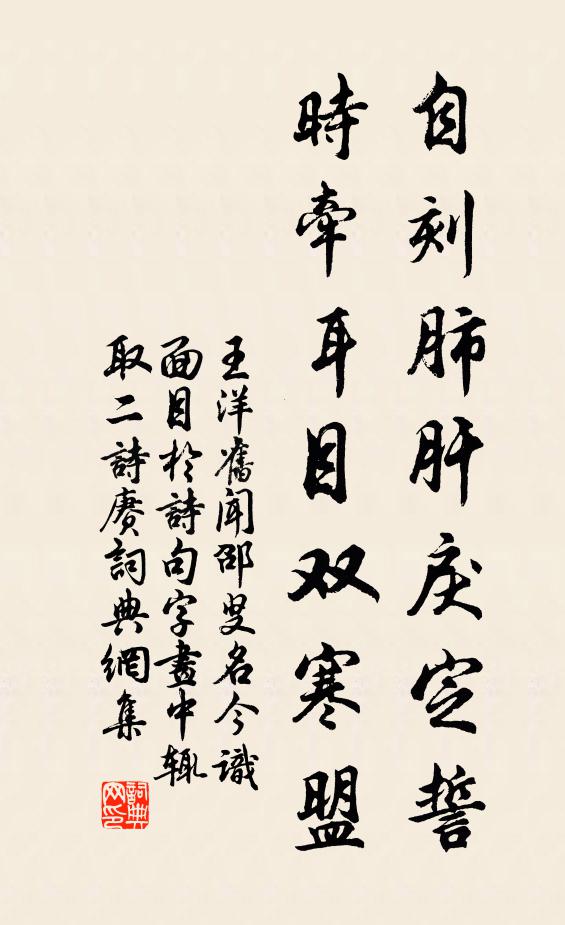 自刻肺肝戾定誓
時牽耳目双寒盟
王洋舊聞邵叟名今識
面目於詩句字畫中輒
取二詩賡詞典網集
詞典网印